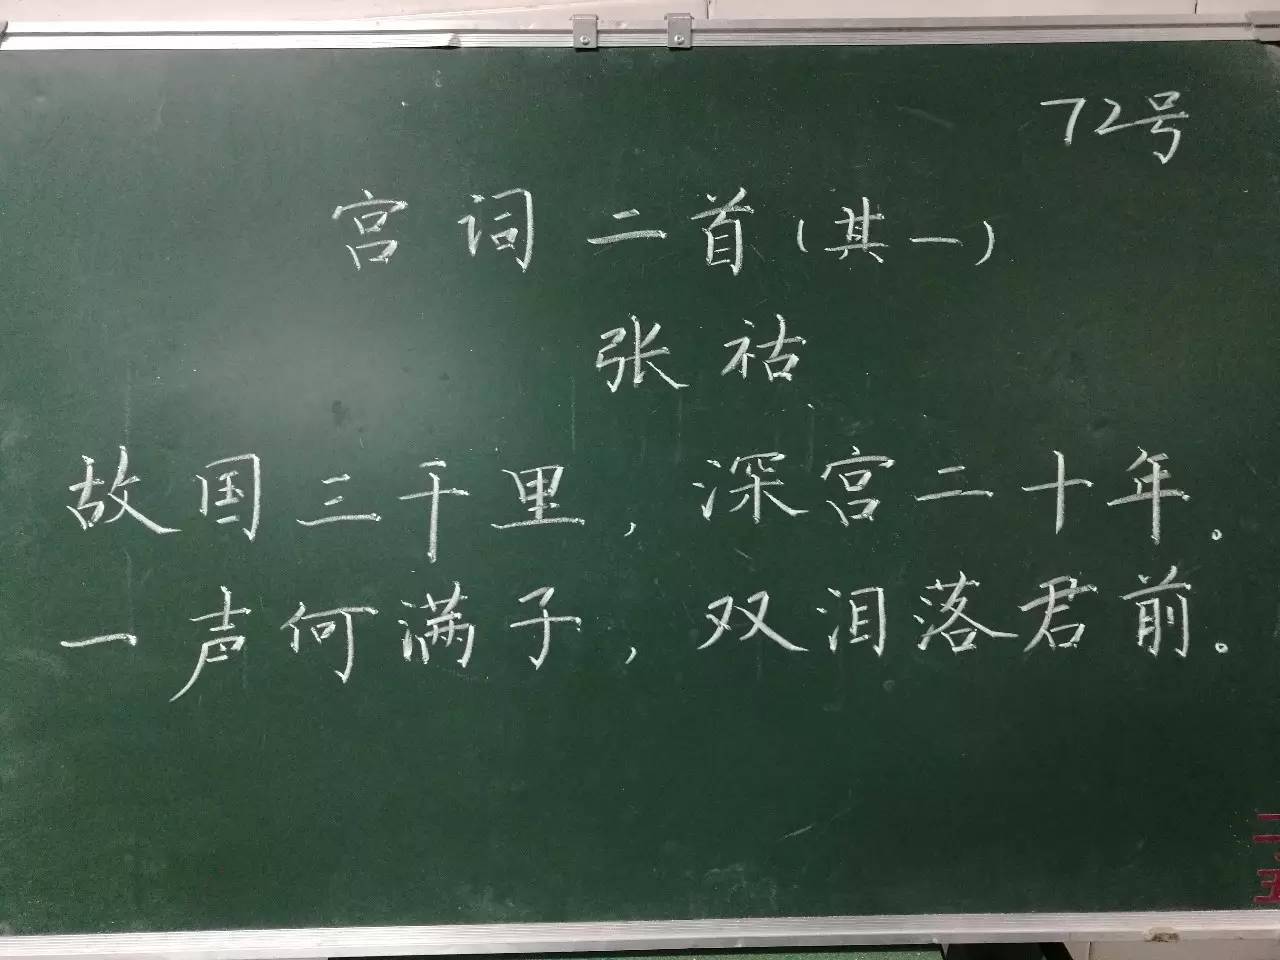 72号
宫词二首(其一)
张祜
故国三千里,深宫二十年。
一声何满子,双泪落君前。